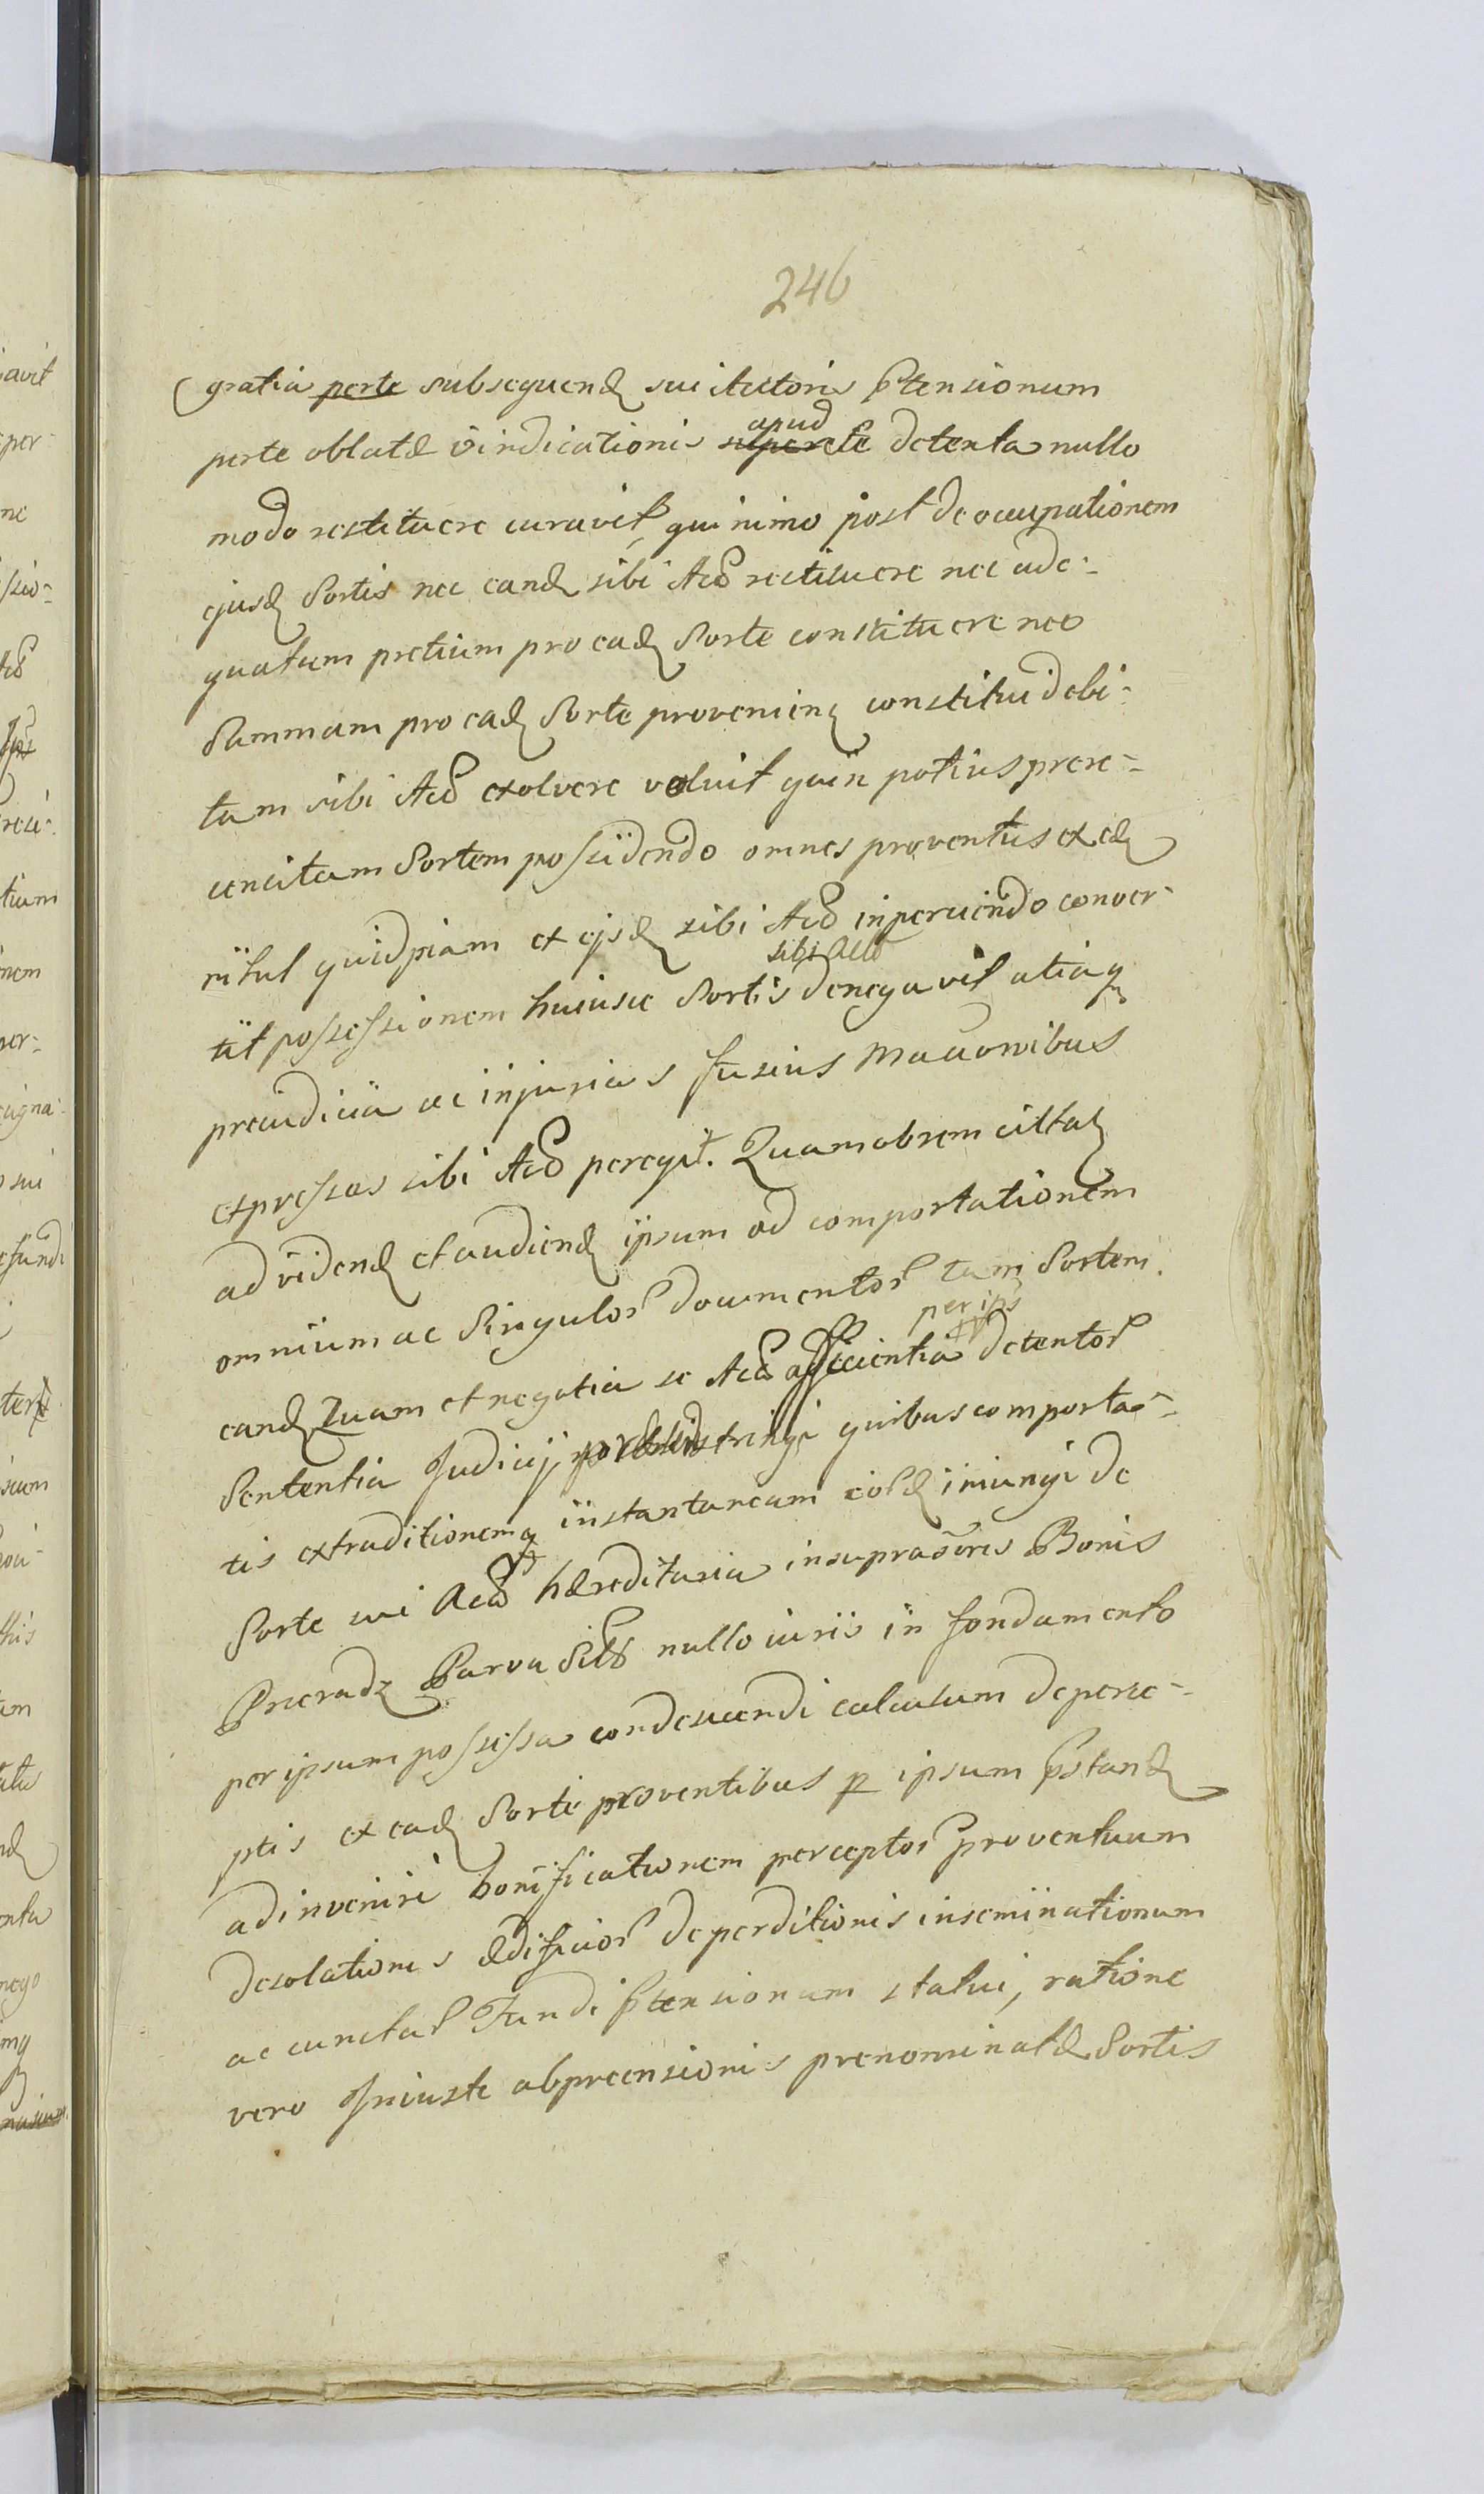 246
gratia perte subsequend sui Actoris Ptensionum
perte oblatæ vindicationis apud se detenta nullo
modo restituere curavit, qui nimo post de occupationem
ejusd Sortis nec eand sibi Act restituere nec ade-
quatum pretium pro ead Sorte constituere nec
Summam pro ead Sorte provenien constitui debi-
tam sibi Act exolvere voluit quin potius prere-
censitam Sortem possidendo omnes proventus ex ead
nihil quidpiam ex ejsd sibi Act inperciendo conver-
tit possessionem huiusce Sortis sibi Acto denegavit aliaq
preiudicia ac injurias fusius
expressas sibi Act peregit. Quamobrem citta
ad videnđ et audienđ ipsum ad comportationem
omnium ac Singulor documentor tam Sortem
eand Quam et negotia se Act afficientia per ips detentor
Sententia Judicij adstringi quibus comporta-
tis extraditionemq instantaneam eisd iniungi de
Sorte sui Act hæreditaria in supra Bonis
Parva Sitt nullo iuris in fondamento
per ipsum possessa condescendi calculum de perce-
ptis ex ead Sorte proventibus p ipsum pstand
adinveniri bonificationem perceptor proventuum
desolationis ædificior deperditionis inseminationum
ac cunctar Fundi ptensionum statui, ratione
vero Iniuste prenominatæ Sortis